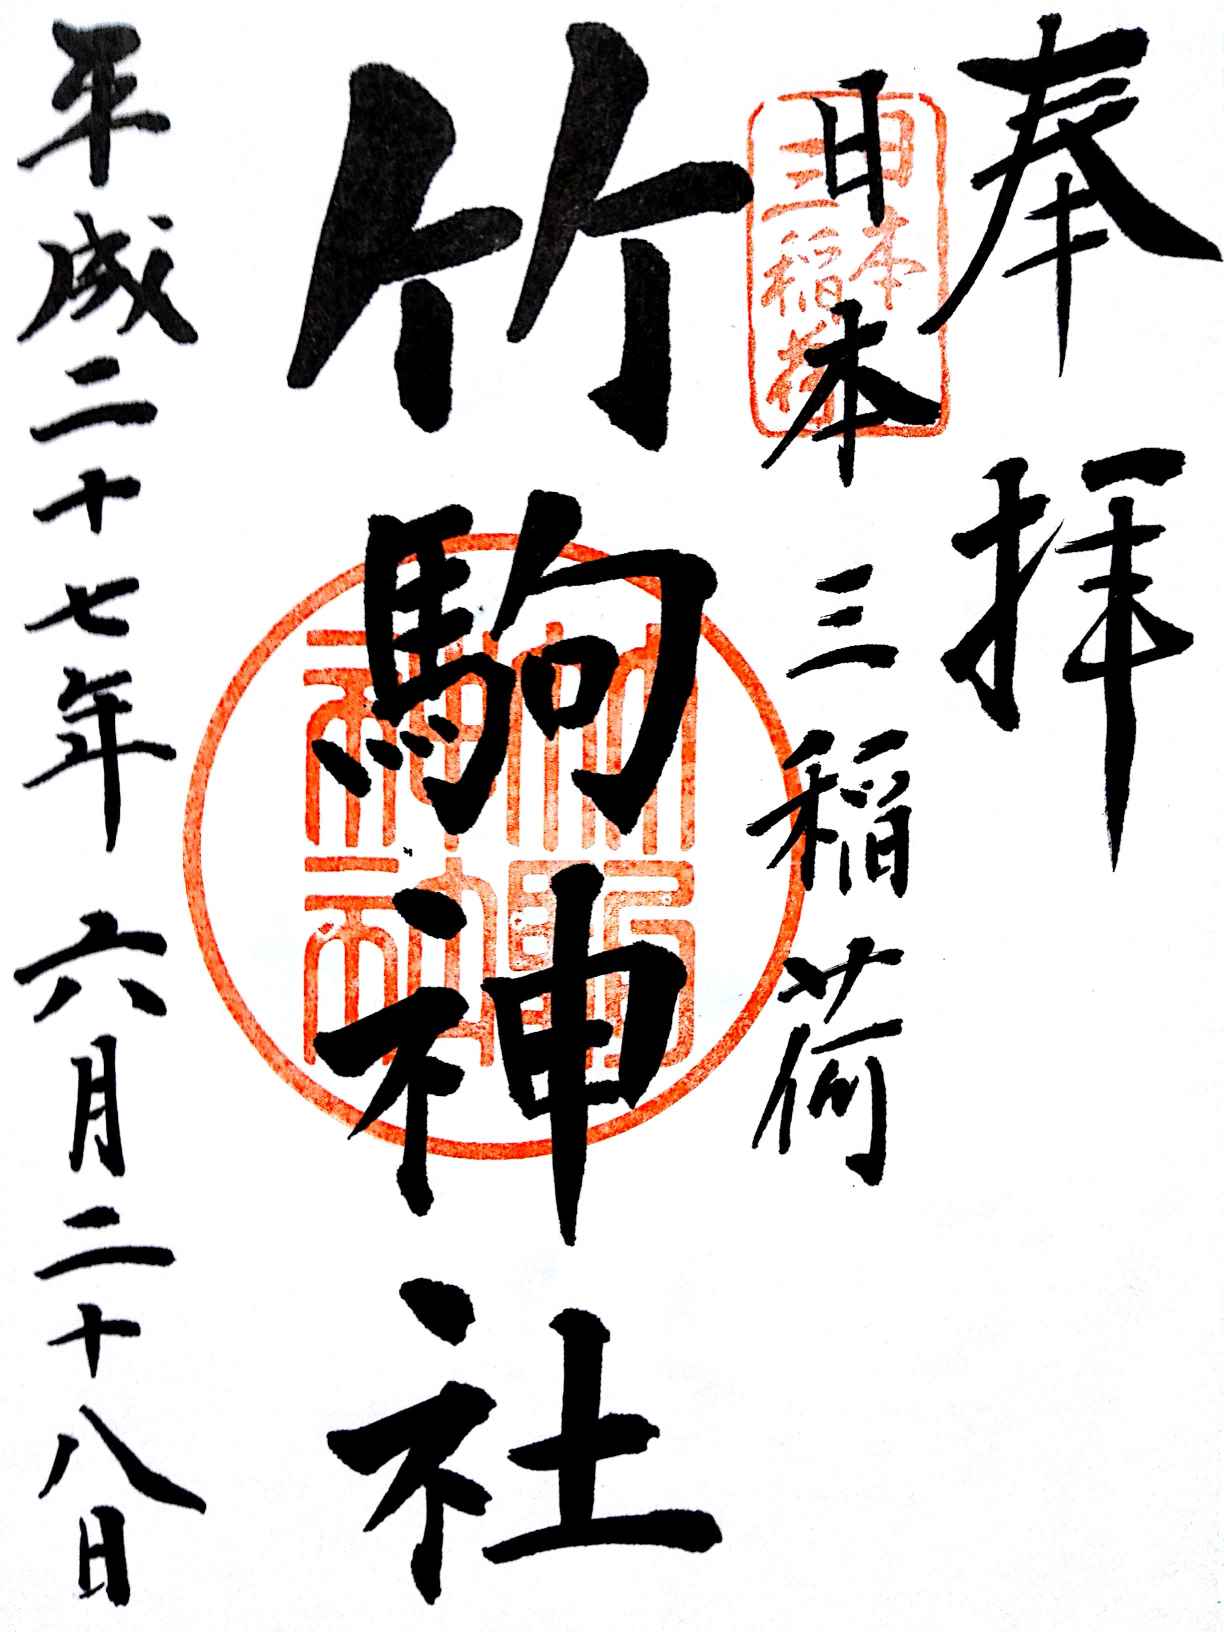 奉拝
日本三稲荷
日本
三稲荷
竹駒神社
竹駒
神社
平成二十七年 六月二十八日